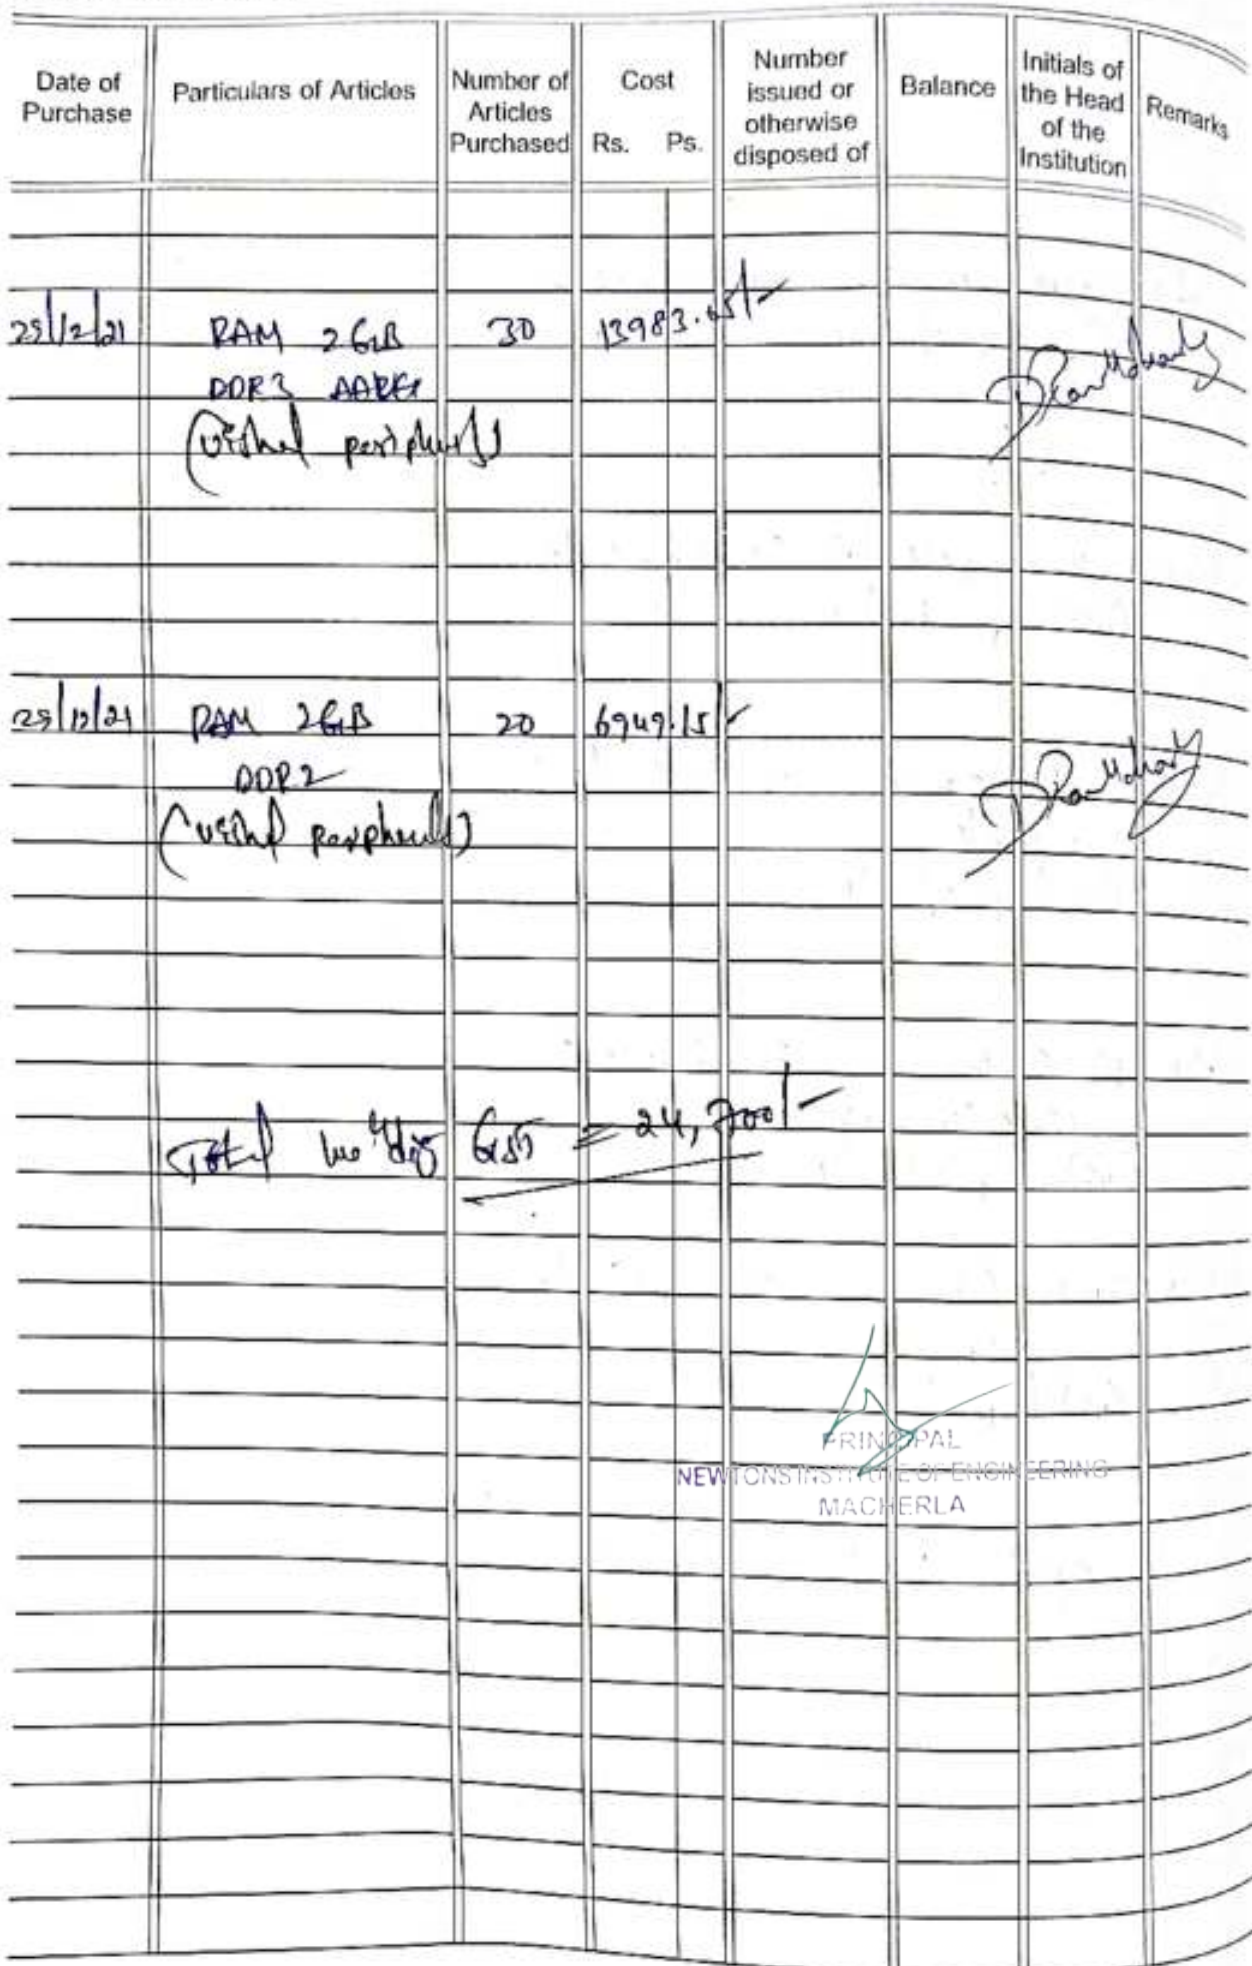 Date of Purchase Particulars of Articles Number of Articles Purchased Cost Rs. Ps. Number issued or otherwise disposed of Balance Initials of the Head of the Institution Remarks
/12/21 RAM 2GB 30 13983.05/-
DDR3
(Vishal peripherals)
/12/21 RAM 2GB 20 6949.15/-
DDR2
(Vishal peripherals)
Total GST = 24,700/-
PRINCIPAL
NEWTONS INSTITUTE OF ENGINEERING
MACHERLA